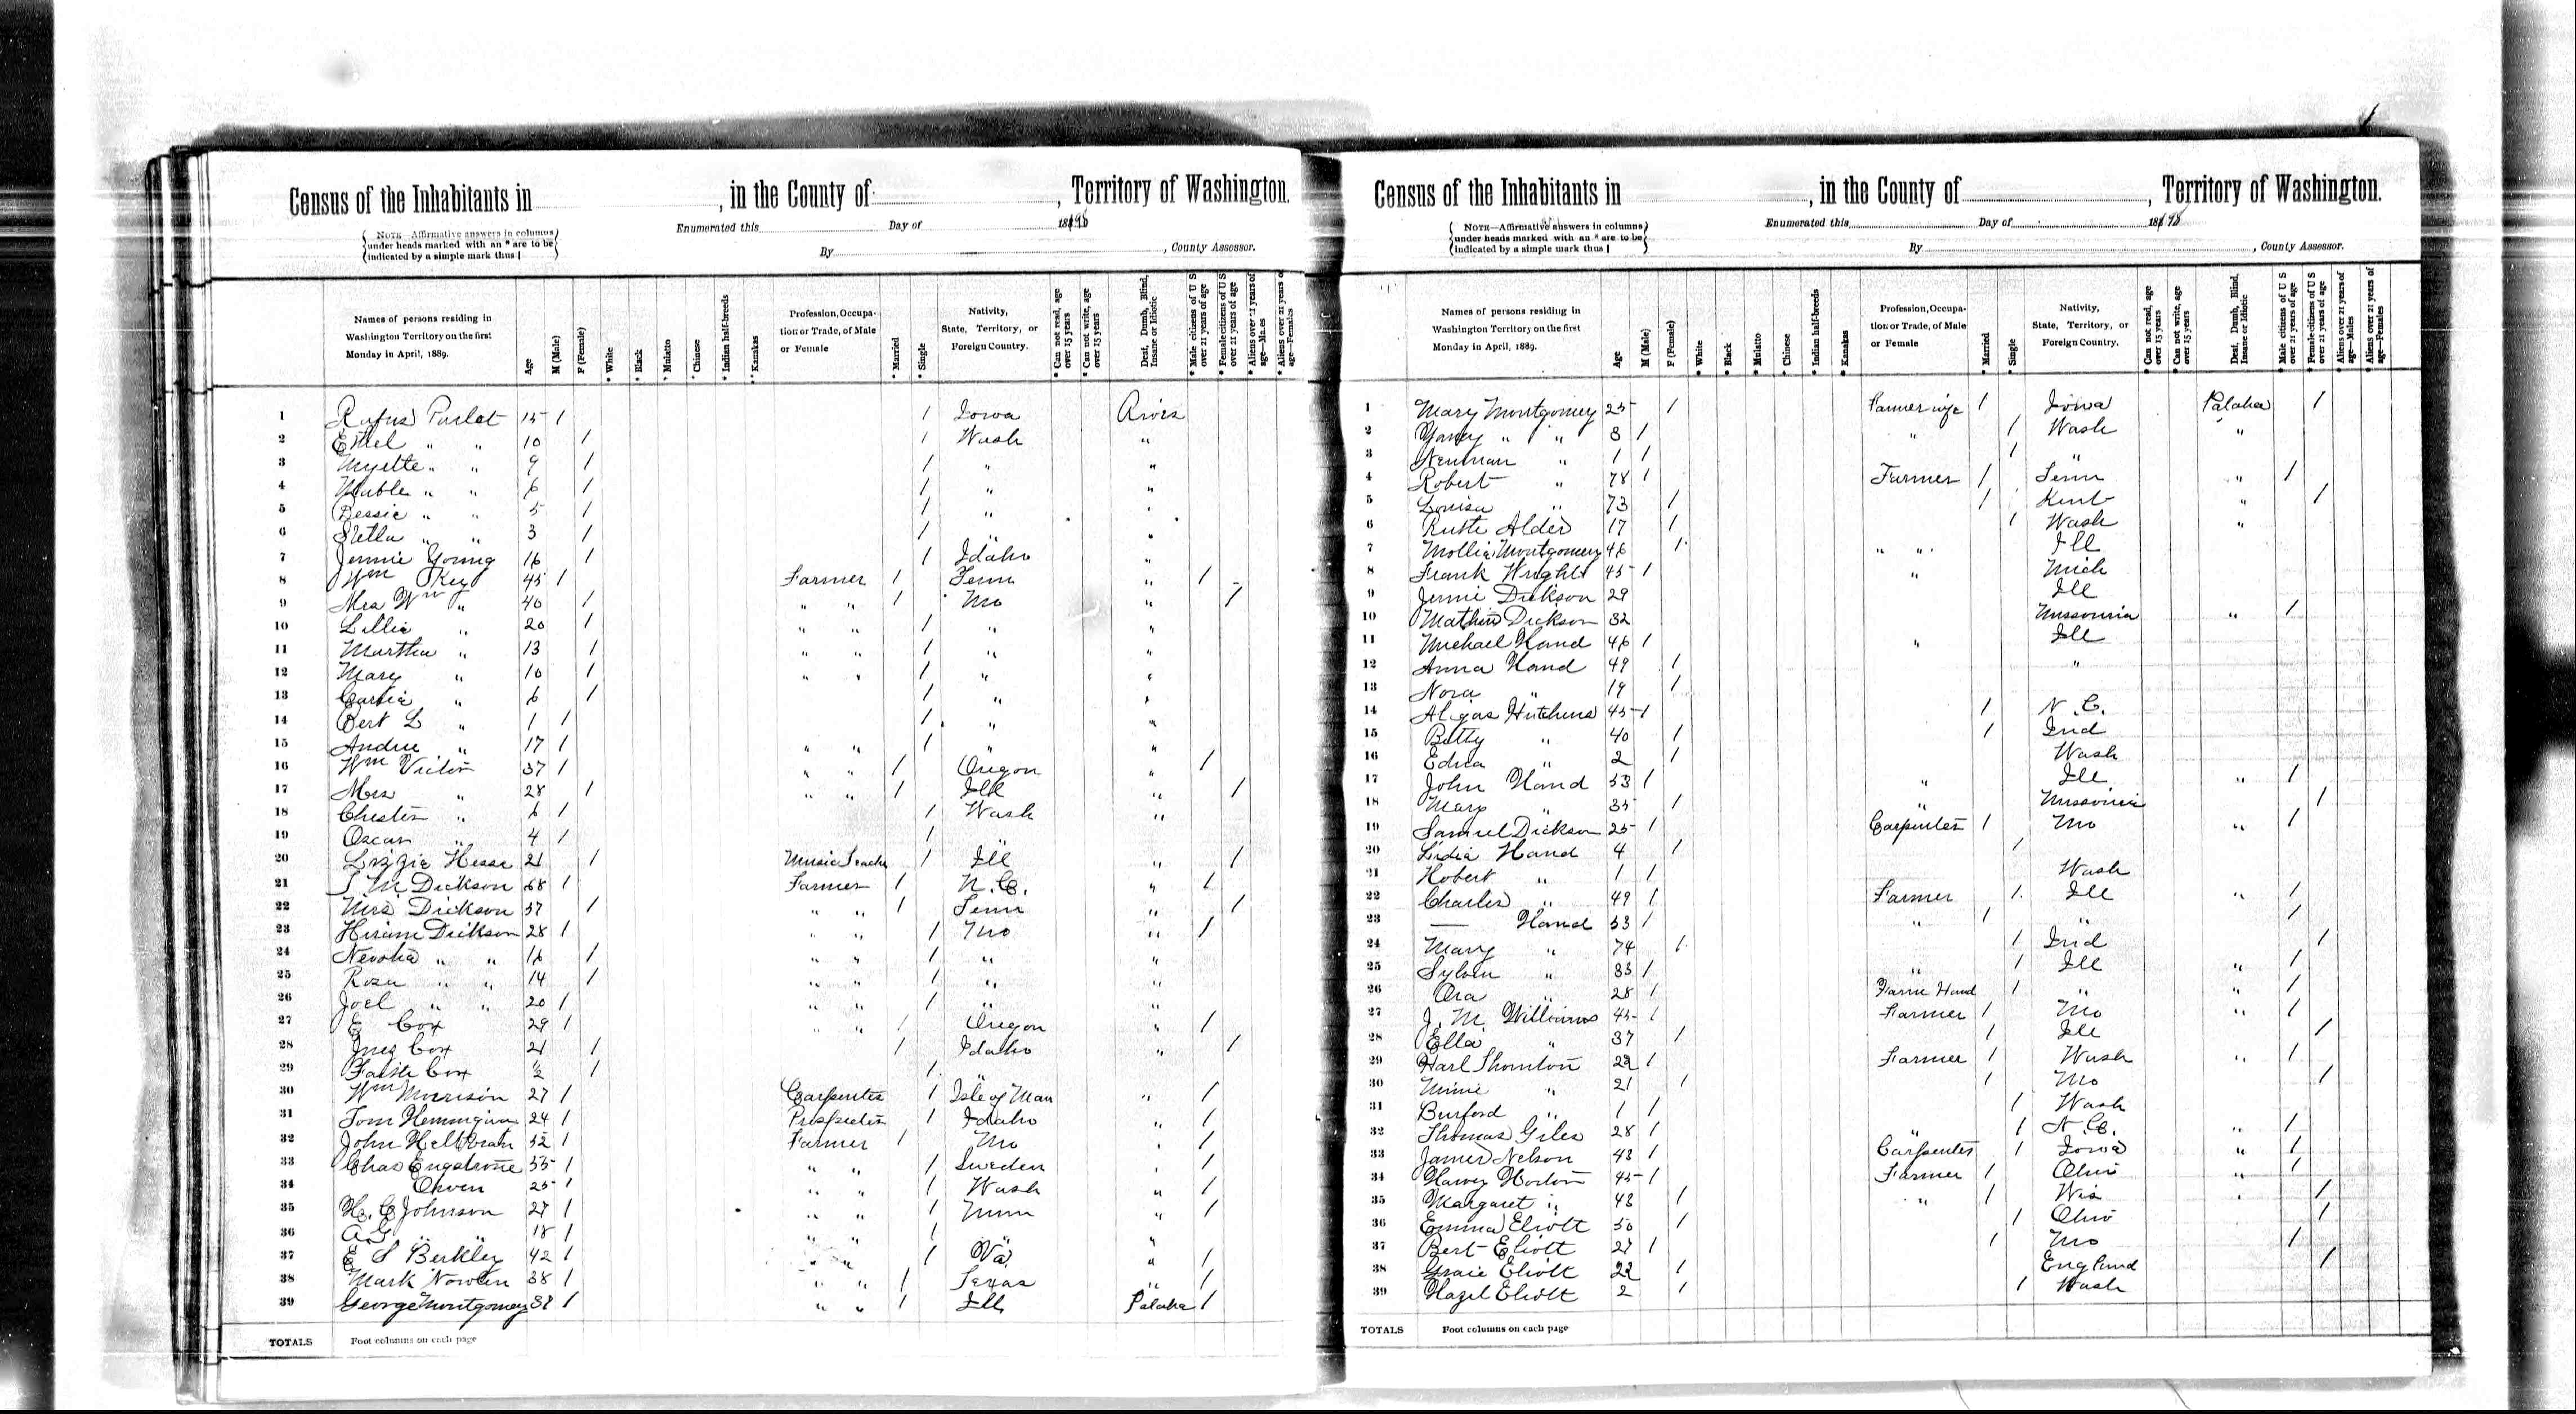 Census of the Inhabitants in , in the County of , Territory of Washington.
Enumerated this Day of 1898
By , County Assessor.
NOTE—Affirmative answers in columns under heads marked with an * are to be indicated by a simple mark thus |
Names of persons residing in Washington Territory on the first Monday in April, 1889. Age M (Male) F (Female) * White * Black * Mulatto * Chinese * Indian half-breeds * Kanakas Profession, Occupation or Trade, of Male or Female * Married * Single Nativity, State, Territory, or Foreign Country. * Can not read, age over 15 years * Can not write, age over 15 years Deaf, Dumb, Blind, Insane or Idiotic * Male citizens of U S over 21 years of age * Female citizens of U S over 21 years of age * Aliens over 21 years of age—Males * Aliens over 21 years of age—Females
1 Rufus 15 1 / Iowa
2 Ethel " " 10 / / Wash "
3 " " 9 / / " "
4 Mable " " 6 / / " "
5 Bessie " " 5 / / " "
6 Stella " " 3 / / " "
7 Jennie Young 16 / / Idaho
8 Wm Key 45 / Farmer / Tenn " /
9 Mrs Wm " 40 / " " / Mo " /
10 Lillie " 20 / " " / " "
11 Martha " 13 / " " / " "
12 Mary " 10 / " " / " "
13 " 6 / / " "
14 Bert L " 1 / / " "
15 " 17 / " " / " "
16 Wm 37 / " " / Oregon " /
17 Mrs " 28 / " " / Ill " /
18 Chester " 6 / / Wash "
19 Oscar " 4 / / "
20 Lizzie Hesse 21 / Music / Ill " /
21 Dickson 68 / Farmer / N.C. " /
22 Mrs Dickson 57 / " " / Tenn " /
23 Hiram Dickson 28 / " " / Mo " /
24 " " 16 / " " / " "
25 Rosa " " 14 / " " / " "
26 Joel " " 20 / " " / " "
27 E Cox 29 / " " / Oregon " /
28 Inez Cox 21 / / Idaho " /
29 Cox ½ / / "
30 Wm Morrison 27 / Carpenter / Isle of Man " /
31 Tom 24 / Prospector / Idaho " /
32 John 52 / Farmer / Mo " /
33 Chas 55 / " " / Sweden " /
34 25 / " " / Wash " /
35 H. C Johnson 27 / " " / Minn " /
36 " " 18 / " " / " "
37 E S Berkley 42 / " " / Va " /
38 Mark 38 / " " / Texas " /
39 George Montgomery / " " / Ill Pataha /
TOTALS Foot columns on each page
Census of the Inhabitants in , in the County of , Territory of Washington.
Enumerated this Day of 1898
By , County Assessor.
NOTE—Affirmative answers in columns under heads marked with an * are to be indicated by a simple mark thus |
Names of persons residing in Washington Territory on the first Monday in April, 1889. Age M (Male) F (Female) * White * Black * Mulatto * Chinese * Indian half-breeds * Kanakas Profession, Occupation or Trade, of Male or Female * Married * Single Nativity, State, Territory, or Foreign Country. * Can not read, age over 15 years * Can not write, age over 15 years Deaf, Dumb, Blind, Insane or Idiotic * Male citizens of U S over 21 years of age * Female citizens of U S over 21 years of age * Aliens over 21 years of age—Males * Aliens over 21 years of age—Females
1 Mary Montgomery 25 / Farmer wife / Iowa Pataha /
2 " " 3 / " / Wash "
3 Newman " 1 / / "
4 Robert " 78 / Farmer / Tenn " /
5 Louisa " 73 / / Kent " /
6 Alder 17 / / Wash "
7 Mollie Montgomery 46 / " " Ill
8 Frank Wright 45 / " Mich
9 Jennie Dickson 29 Ill
10 Dickson 32 " /
11 Michael Hand 46 / " Ill
12 Anna Hand 49 / "
13 Nora " 19 /
14 Hutchens 45 / / N.C.
15 Betty " 40 / / Ind
16 Edna " 2 / Wash
17 John Hand 53 / " Ill " /
18 Mary " 35 / " /
19 Samuel Dickson 25 / Carpenter / Mo " /
20 Lidia Hand 4 / /
21 Hobert " 1 / Wash
22 Charles " 49 / Farmer / Ill " /
23 — Hand 53 / " / " /
24 Mary " 74 / / Ind /
25 " / " / Ill " /
26 Ora " 28 / Farm Hand / " " /
27 J. M. Williams 45 / Farmer / Mo " /
28 Ella " 37 / / Ill /
29 Thornton 22 / Farmer / Wash " /
30 Minie " 21 / / Mo /
31 Burford " 1 / / Wash
32 Thomas Giles 28 / " / N.C. " /
33 James Nelson 43 / Carpenter / Iowa " /
34 Harvey Horton 45 / Farmer / Ohio " /
35 Margaret " 43 / " / Wis " /
36 Emma Eliott 50 / / Ohio /
37 Bert Eliott 27 / / Mo /
38 Gracie Eliott 22 / England /
39 Hazel Eliott 2 / / Wash
TOTALS Foot columns on each page